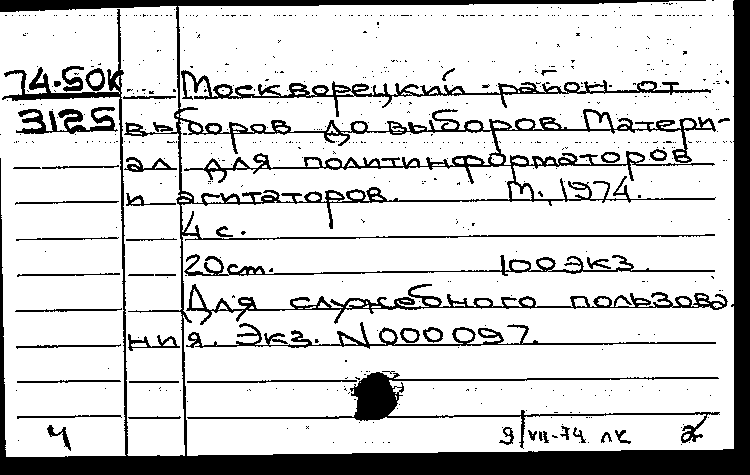 74.50к Москворецкий район от
3125 выборов до выборов. Матери-
ал для политинформаторов
и агитаторов. М., 1974.
4 с.
20см. 100экз.
Для служебного пользова
ния. Экз. N000097.
Ч 9/VII-74 лк 2